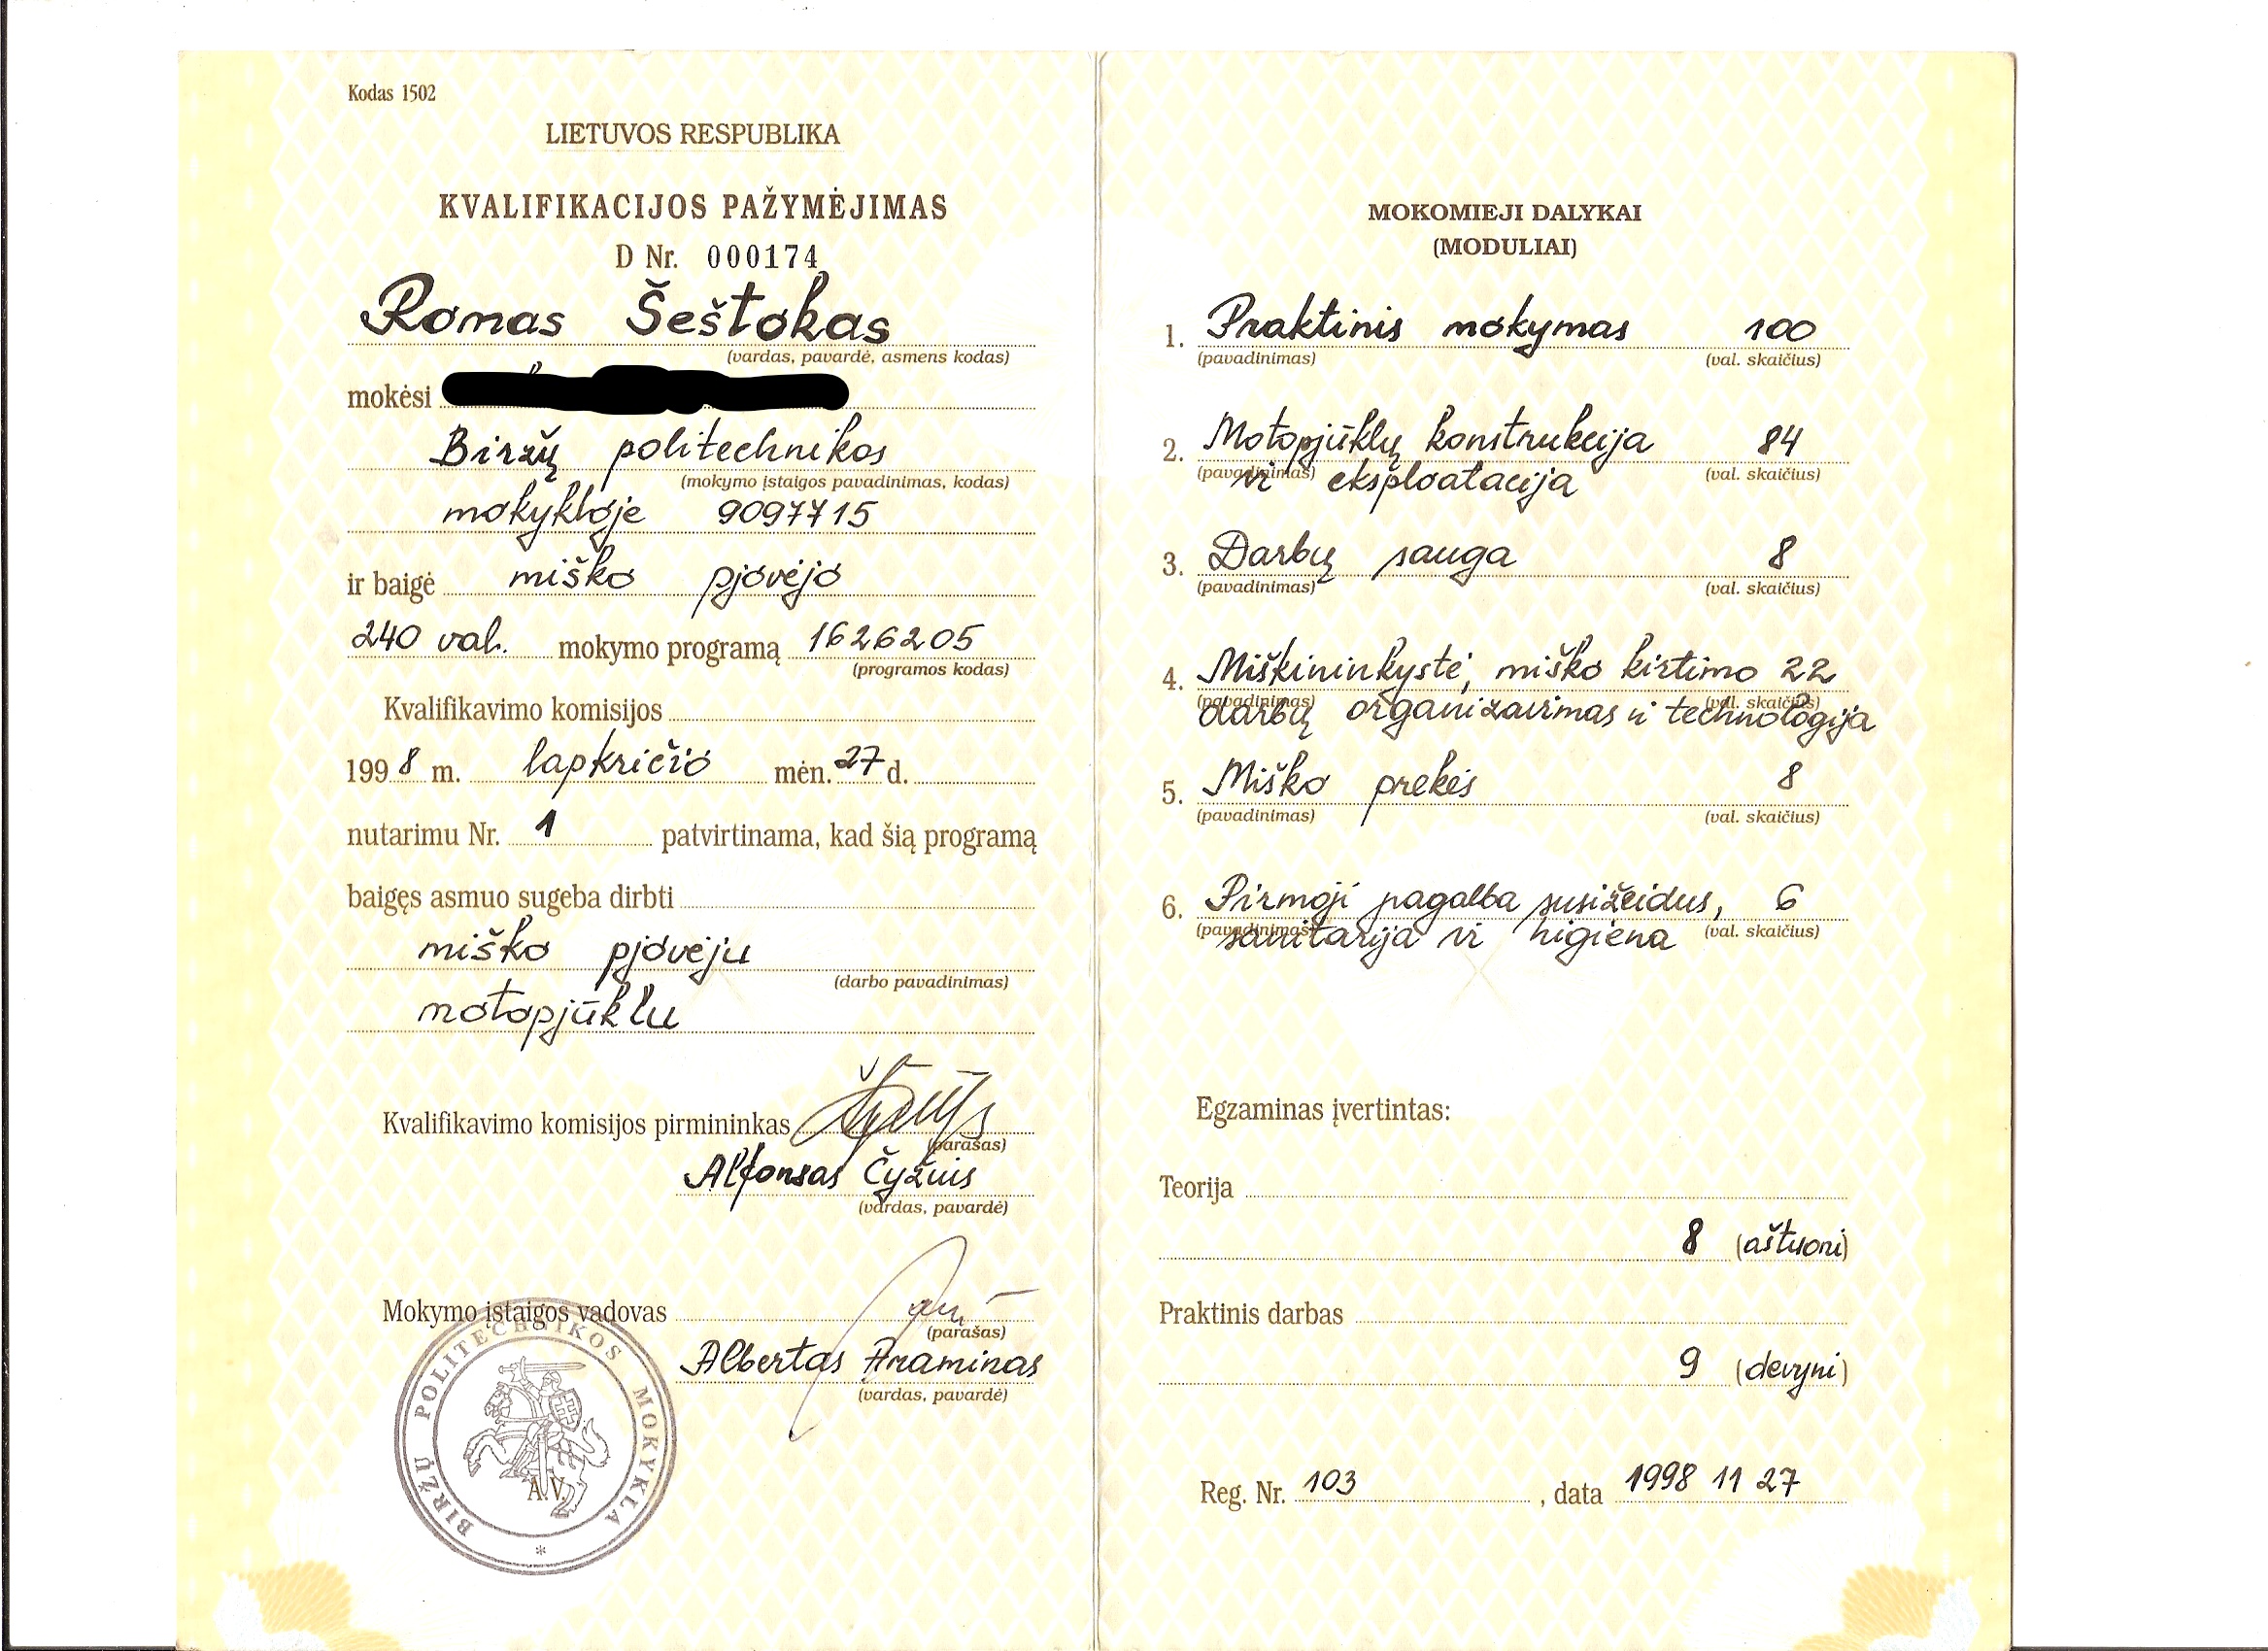 Kodas 1502
LIETUVOS RESPUBLIKA
KVALIFIKACIJOS PAŽYMĖJIMAS
D Nr. 000174
Romas Šeštokas
(vardas, pavardė, asmens kodas)
mokėsi
Biržų politechnikos
(mokymo įstaigos pavadinimas, kodas)
mokykloje 9097715
ir baigė miško pjovėjo
240 val. mokymo programą 1626205
(programos kodas)
Kvalifikavimo komisijos
1998 m. lapkričio mėn. 27 d.
nutarimu Nr. 1 patvirtinama, kad šią programą
baigęs asmuo sugeba dirbti
miško pjovėju
(darbo pavadinimas)
motopjūklu
Kvalifikavimo komisijos pirmininkas
(parašas)
Alfonsas Čyžuis
(vardas, pavardė)
Mokymo įstaigos vadovas
(parašas)
Albertas Araminas
(vardas, pavardė)
BIRŽŲ POLITECHNIKOS MOKYKLA *
A.V.
MOKOMIEJI DALYKAI
(MODULIAI)
1. Praktinis mokymas 100
(pavadinimas) (val. skaičius)
2. Motopjūklų konstrukcija 84
(pavadinimas) (val. skaičius)
ir eksploatacija
3. Darbų sauga 8
(pavadinimas) (val. skaičius)
4. Miškininkystė, miško kirtimo 22
(pavadinimas) (val. skaičius)
darbų organizavimas ir technologija
5. Miško prekės 8
(pavadinimas) (val. skaičius)
6. Pirmoji pagalba susižeidus, 6
(pavadinimas) (val. skaičius)
sanitarija ir higiena
Egzaminas įvertintas:
Teorija
8 (aštuoni)
Praktinis darbas
9 (devyni)
Reg. Nr. 103 , data 1998 11 27